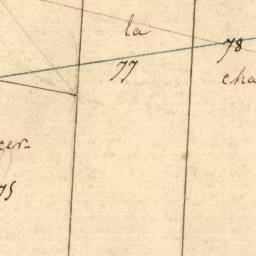 la
78
77
cha
cer-
75